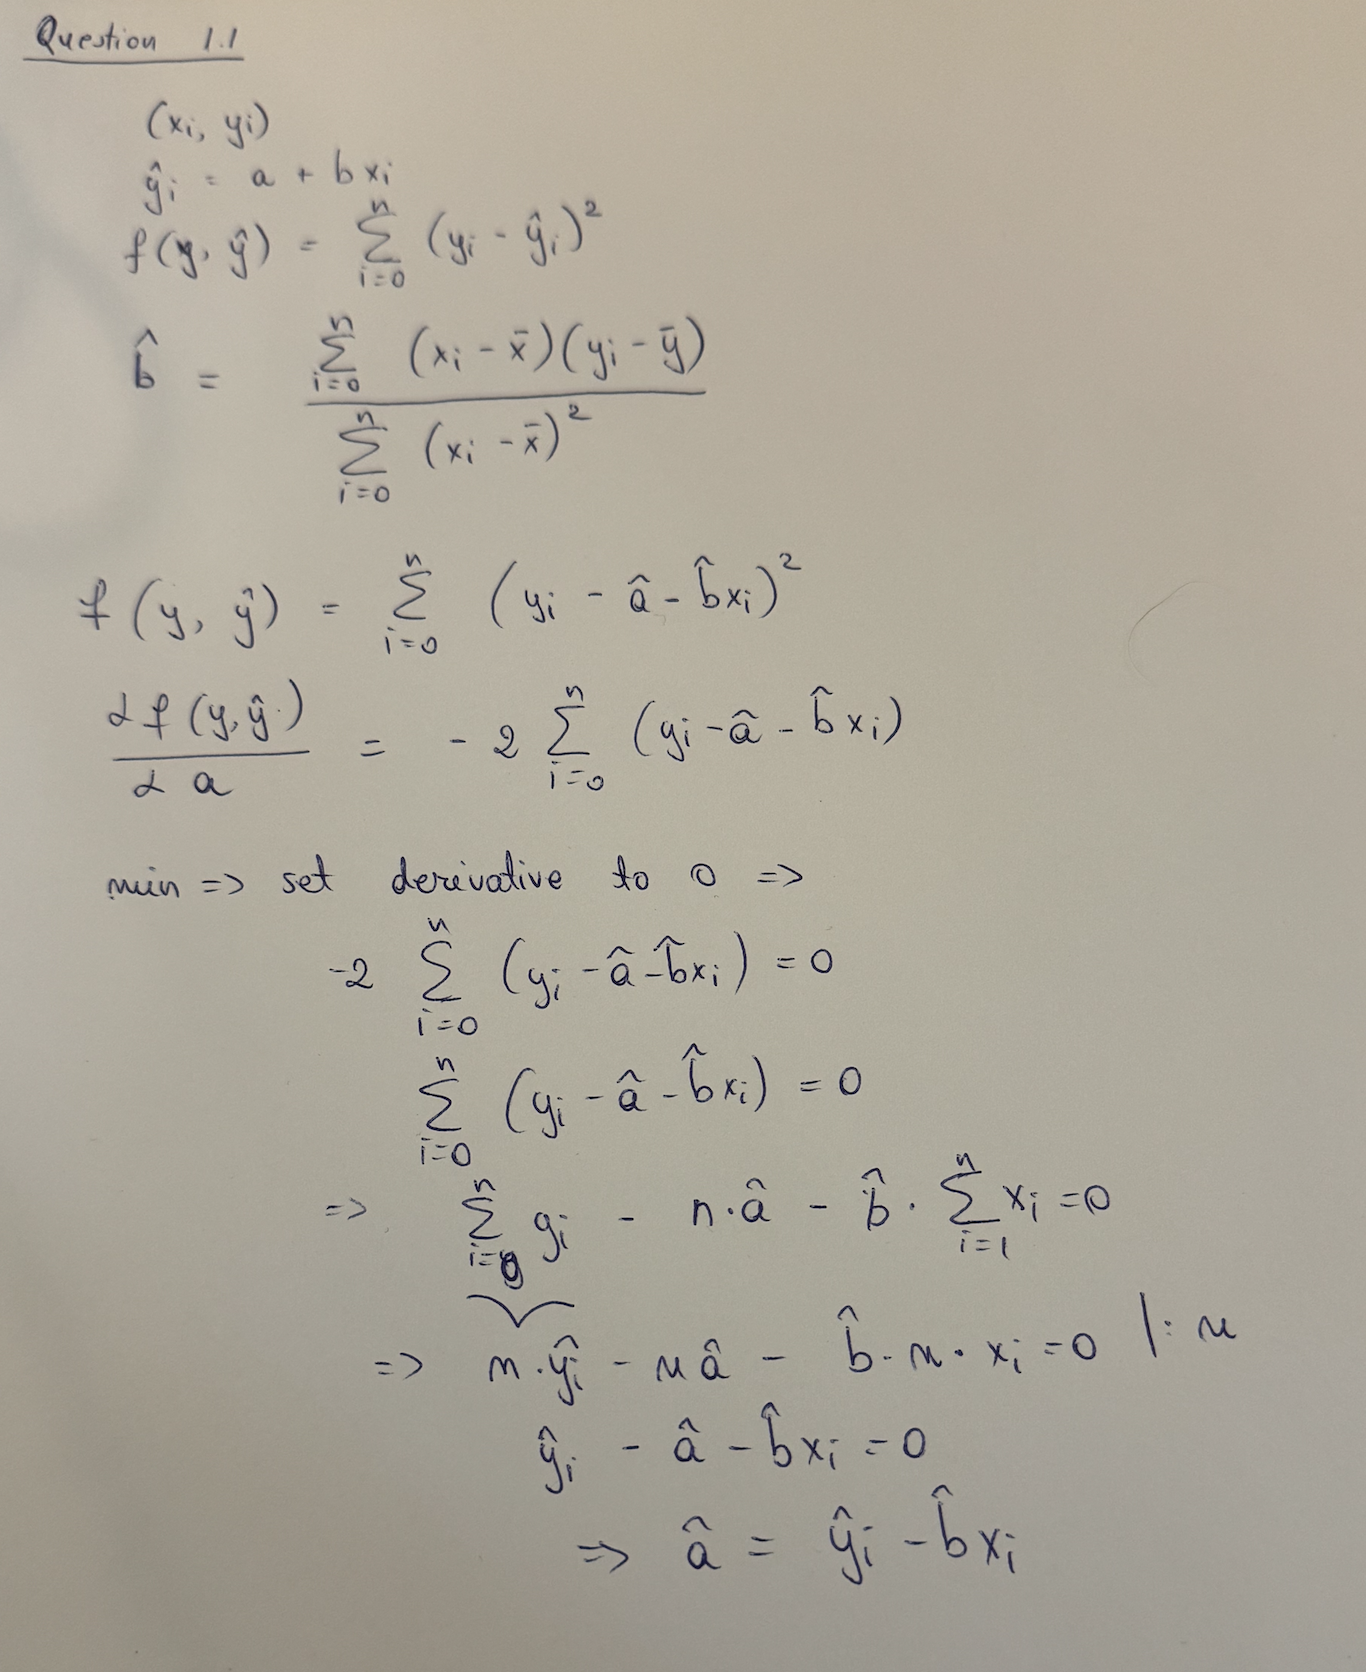 Question 1.1
(xi, yi)
ŷi = a + b xi
f(y, ŷ) = ∑_{i=0}^{n} (yi - ŷi)²
b̂ = \frac{∑_{i=0}^{n} (xi - x̄)(yi - ȳ)}{∑_{i=0}^{n} (xi - x̄)²}
f(y, ŷ) = ∑_{i=0}^{n} (yi - â - b̂xi)²
\frac{d f(y, ŷ)}{d a} = - 2 ∑_{i=0}^{n} (yi - â - b̂xi)
min => set derivative to 0 =>
-2 ∑_{i=0}^{n} (yi - â - b̂xi) = 0
∑_{i=0}^{n} (yi - â - b̂xi) = 0
=> ∑_{i=0}^{n} yi - n·â - b̂ · ∑_{i=1}^{n} xi = 0
=> n·ŷi - nâ - b̂·n·xi = 0 |: n
ŷi - â - b̂xi = 0
=> â = ŷi - b̂xi